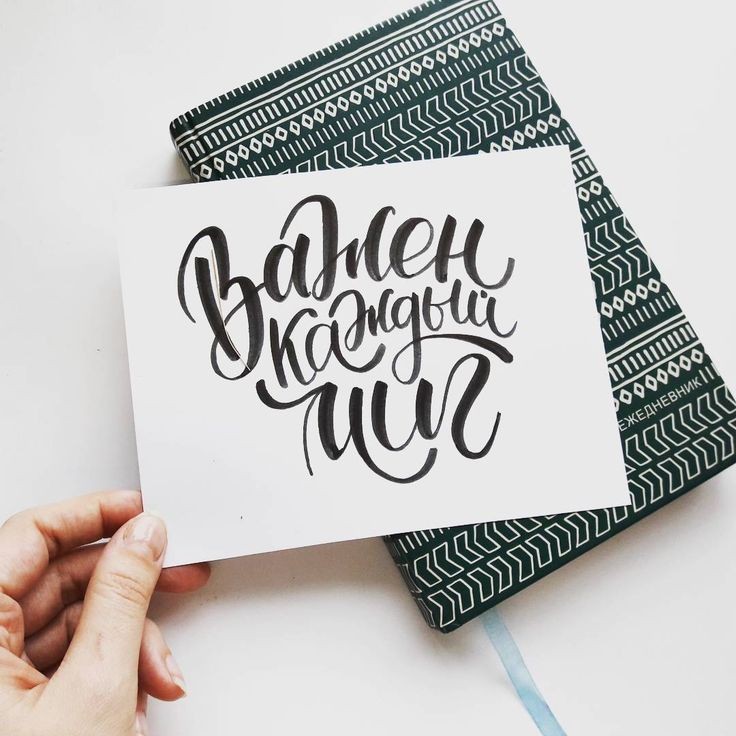 Важен
каждый
миг
ЕЖЕДНЕВНИК